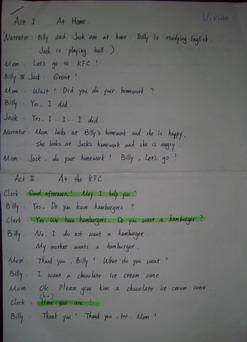 Vivian
Act I At Home
(Narrator: Billy and Jack are at home. Billy is studying English.
Jack is playing ball.)
Mom: Let's go to KFC!
Billy & Jack: Great!
Mom: Wait! Did you do your homework?
Billy: Yes, I did.
Jack: Yes, I...I...I did
Narrator: Mom looks at Billy's homework and she is happy.
She looks at Jack's homework and she is angry.
Mom: Jack, do your homework! Billy, Let's go!
Act II: At the KFC
Clerk: Good afternoon! May I help you?
Billy: Yes. Do you have hamburgers?
Clerk: Yes. We have hamburgers. Do you want a hamburger?
Billy: No, I do not want a hamburger.
My mother wants a hamburger.
Mom: Thank you, Billy! What do you want?
Billy: I want a chocolate ice cream cone.
Mom: Ok. Please give him a chocolate ice cream cone.
Clerk: Here you are.
Billy: Thank you! Thank you, too, Mom!